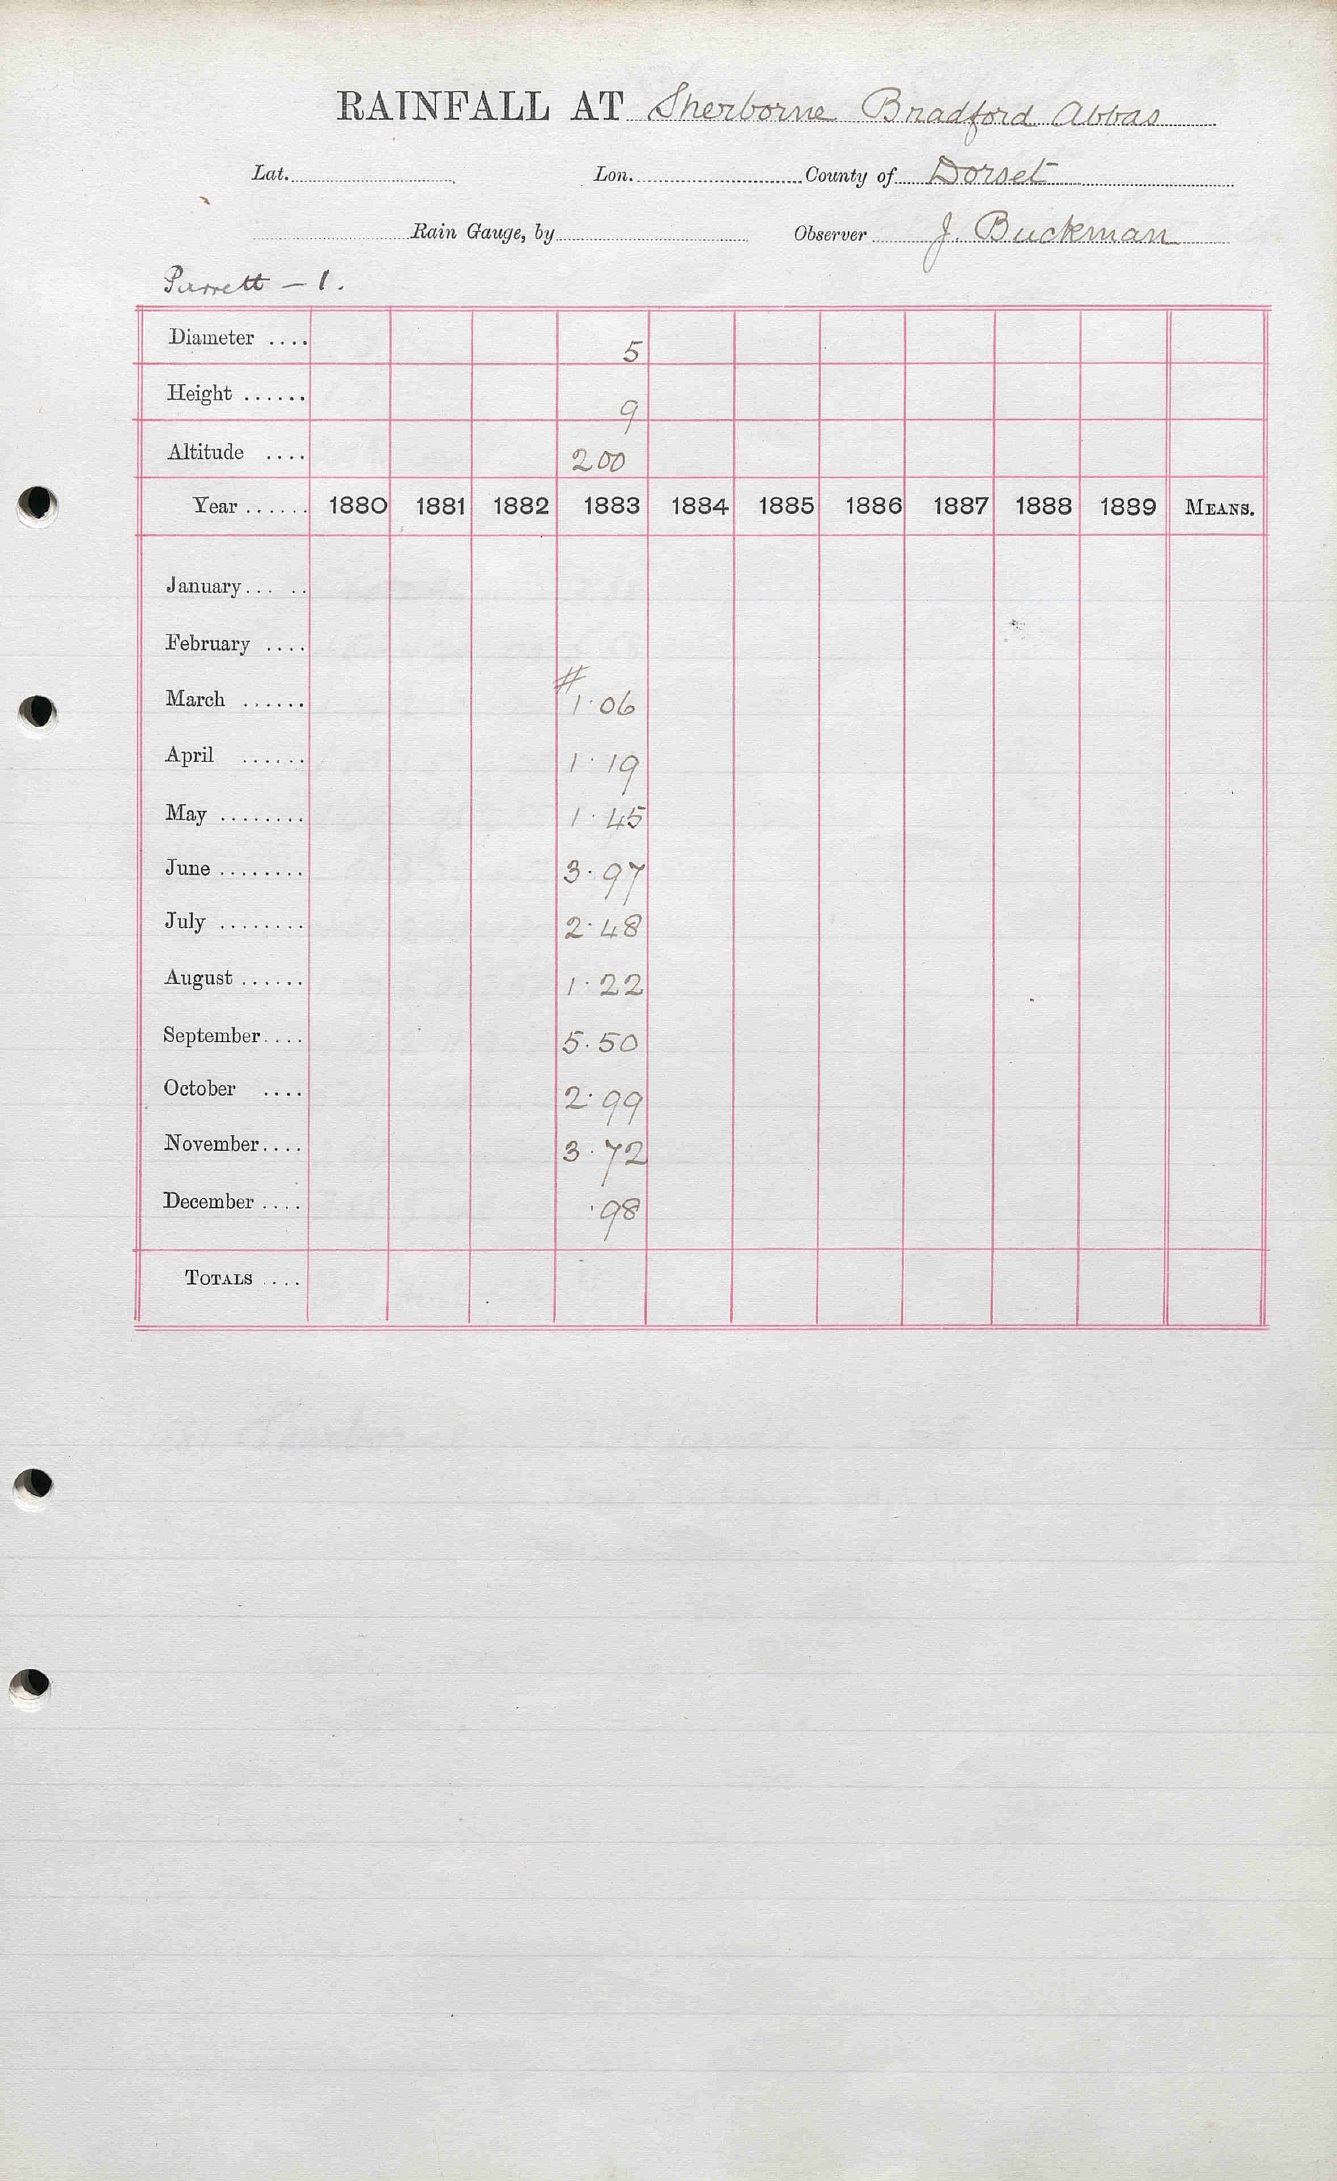 RAINFALL AT Sherborne Bradford Abbas
Lat. Lon. County of Dorset
Rain Gauge, by Observer J. Buckman
Parrett – 1.
Diameter .... 5
Height ...... 9
Altitude .... 200
Year ...... 1880 1881 1882 1883 1884 1885 1886 1887 1888 1889 MEANS.
January.....
February ....
#
March ...... 1.06
April ...... 1.19
May ........ 1.45
June ........ 3.97
July ........ 2.48
August ...... 1.22
September.... 5.50
October .... 2.99
November.... 3.72
December .... .98
TOTALS ....